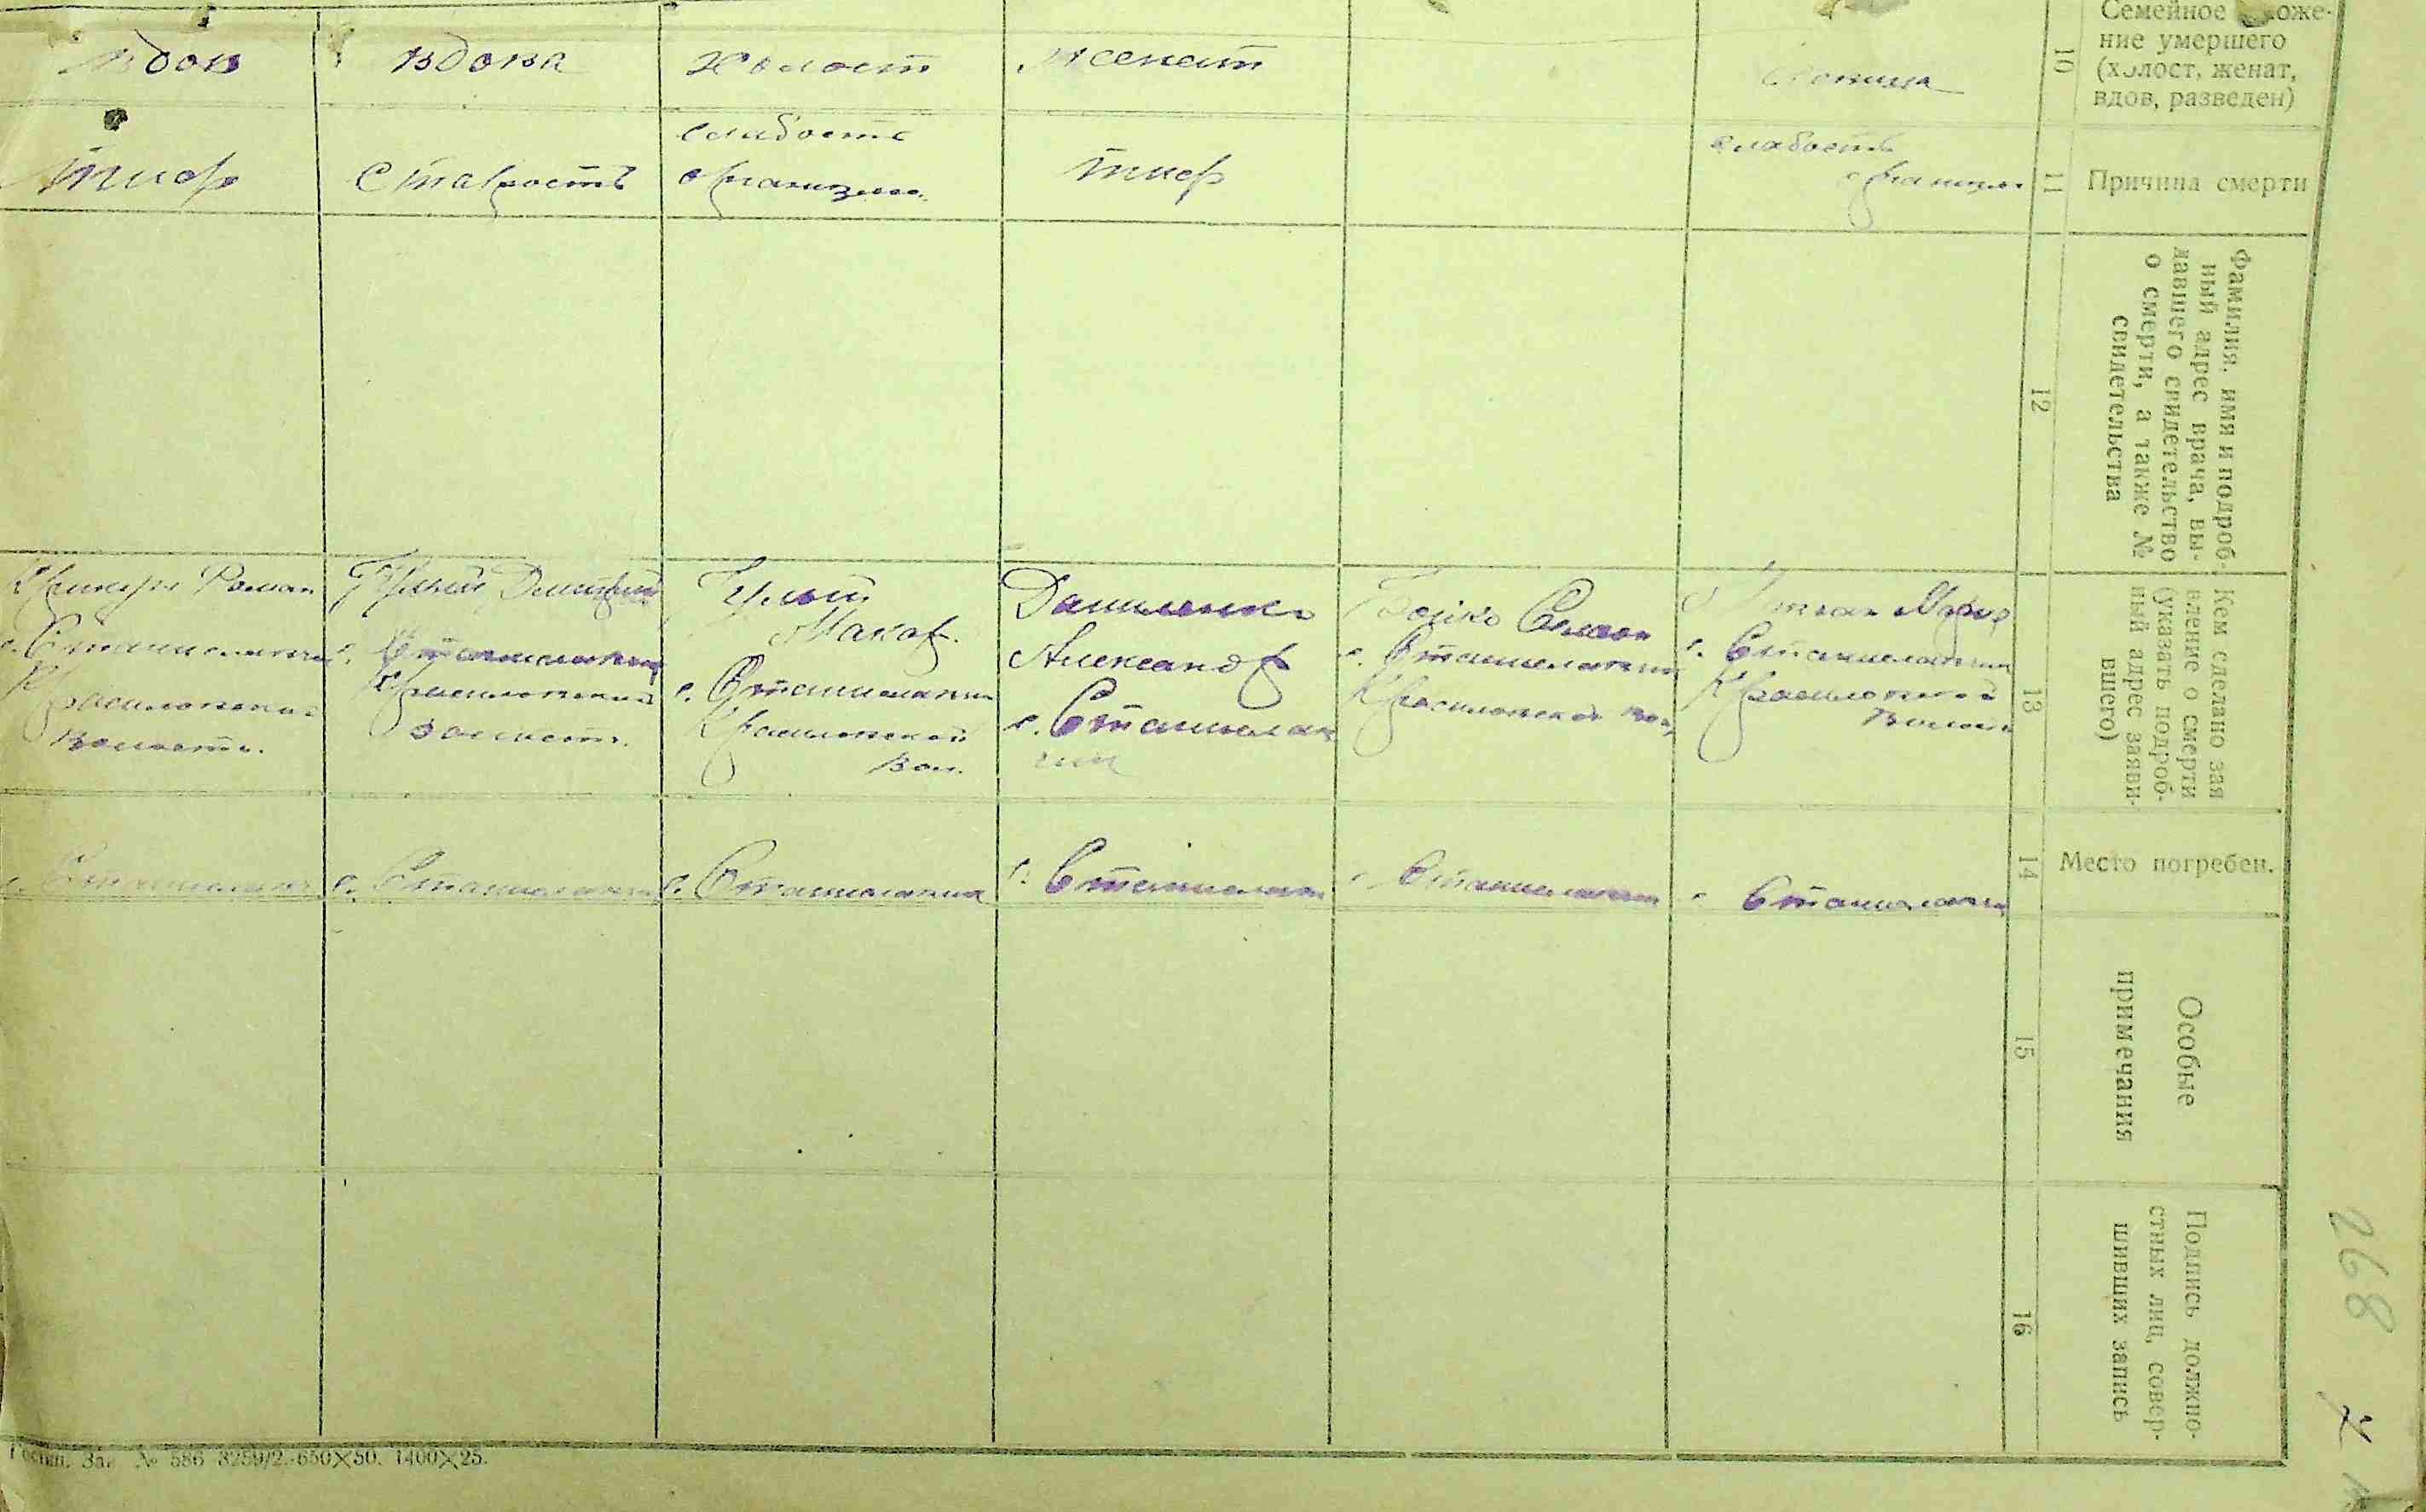 вдов
вдова
холост
женат
10
ние умершего
(холост, женат,
вдов, разведен)
тиф
старость
слабость
организма
тиф
слабость
11
Причина смерти
12
Фамилия, имя и подроб-
ный адрес врача, вы-
давшего свидетельство
о смерти, а также №
свидетельства
Роман
с. Станиславчик
Красиловской
волости.
Дмитрий
с. Станиславчик
Красиловской
волости.
Макар.
с. Станиславчик
Красиловской
вол.
Даниленко
Александр
с. Станислав
чик
Бойко Семен
с. Станиславчик
Красиловской вол.
с. Станиславчик
Красиловской
Волости
13
Кем сделано зая
вление о смерти
(указать подроб-
ный адрес заяви-
вшего)
с. Станиславчик
с. Станиславчик
с. Станиславчик
с. Станиславчик
с. Станиславчик
с. Станиславчик
14
Место погребен.
15
Особые
примечания
16
Подпись должно-
стных лиц, совер-
шивших запись
268
№ 586 3259/2.-650×50. 1400×25.